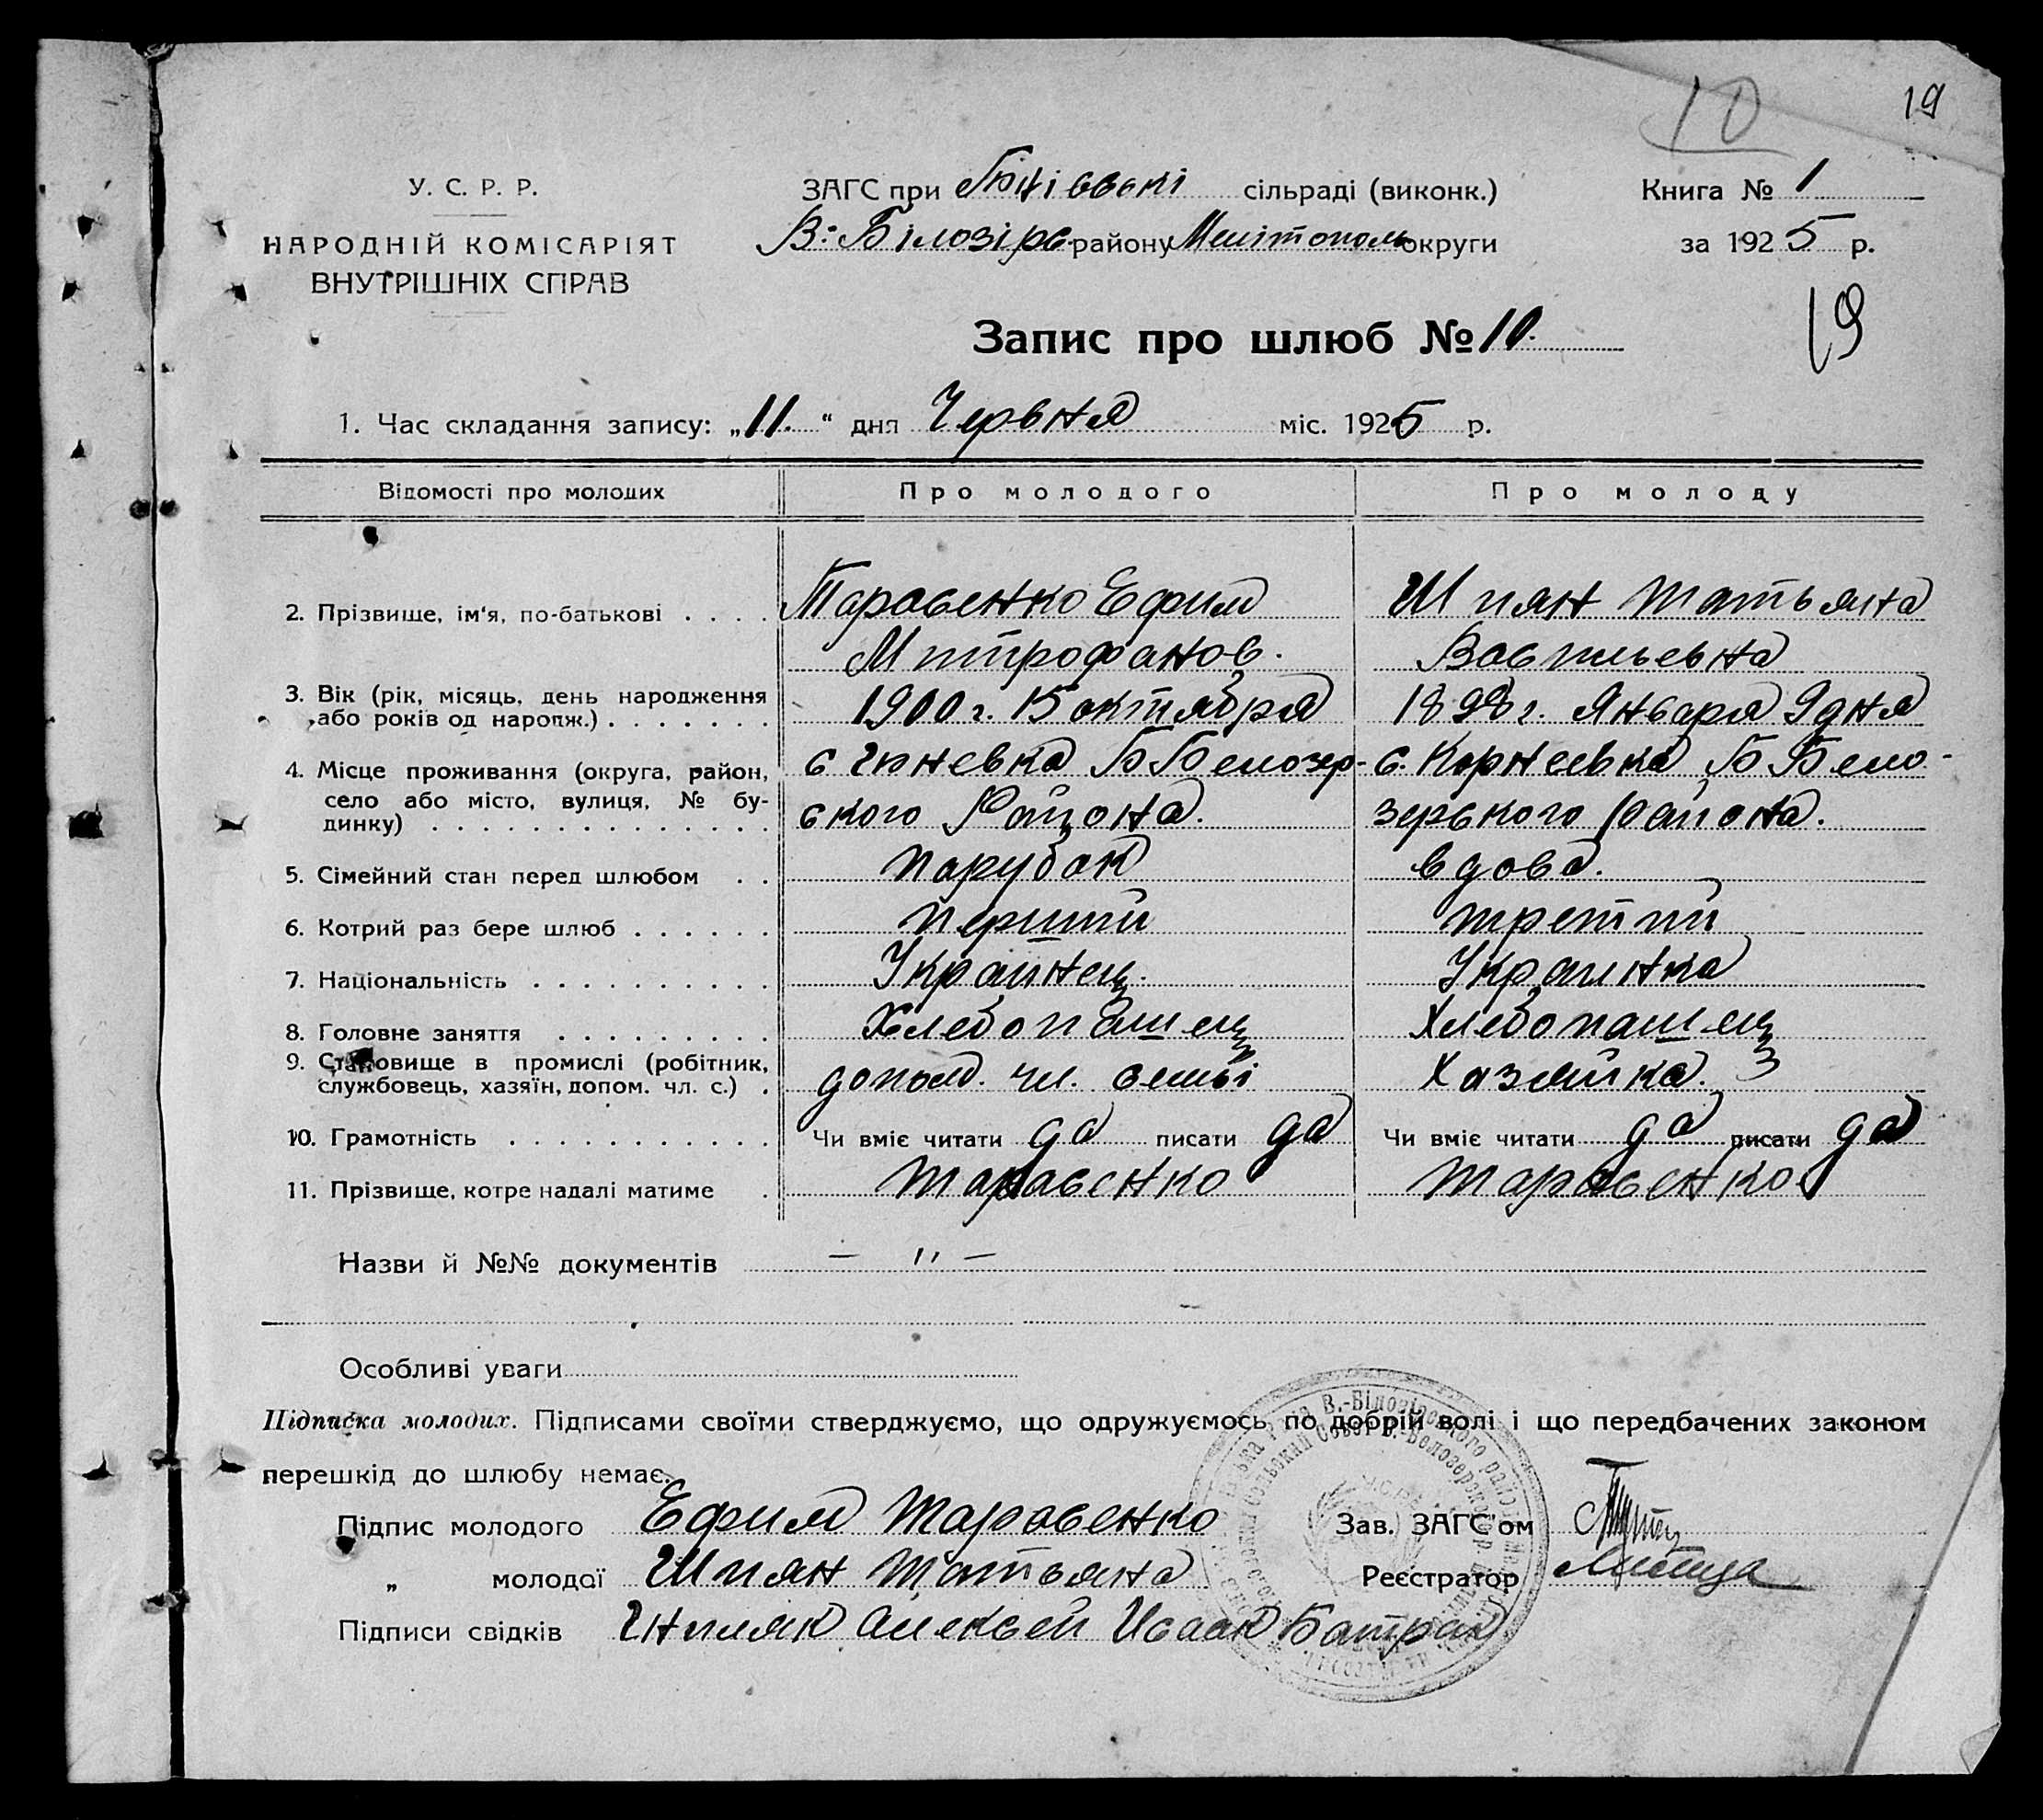 10
19
У. С. Р. Р.
НАРОДНІЙ КОМІСАРІЯТ
ВНУТРІШНІХ СПРАВ
ЗАГС при сільраді (виконк.)
В.-Білозірс районуМелітопольокруги
Книга № 1
за 1925 р.
19
Запис про шлюб №10.
1. Час складання запису: „11.“ дня Червня міс. 1925 р.
Відомості про молодих Про молодого Про молоду
2. Прізвище, ім‘я, по-батькові . . . . Тарасенко Ефим Шпян Татьяна
Митрофанов. Васильевна
3. Вік (рік, місяць, день народження
або років од народж.) . . . . . . . 1900 г. 15 октября 1898 г. Января 9 дня
4. Місце проживання (округа, район, с. Б Белозер- с. Корнеевка Б Бело-
село або місто, вулиця, № бу- ского Района. зерского района.
динку) . . . . . . . . . . . . . . .
5. Сімейний стан перед шлюбом . . парубак вдова.
6. Котрий раз бере шлюб . . . . . . перший третий
7. Національність . . . . . . . . . . Украйнец. Украинка
8. Головне заняття . . . . . . . . . Хлебопашец Хлебопашец
9. Становище в промислі (робітник,
службовець, хазяїн, допом. чл. с.) . допом. чл. семьі Хазяйка. 3
10. Грамотність . . . . . . . . . . . . Чи вміє читати да писати да Чи вміє читати да писати да
11. Прізвище, котре надалі матиме . Тарасенко Тарасенко
Назви й №№ документів — " —
Особливі уваги
Підписка молодих. Підписами своїми стверджуємо, що одружуємось по добрій волі і що передбачених законом
перешкід до шлюбу немає.
Підпис молодого Ефим Тарасенко Зав. ЗАГС'ом
„ молодої Шпян Татьяна Реєстратор
Підписи свідків Алексей Исаак Батрак